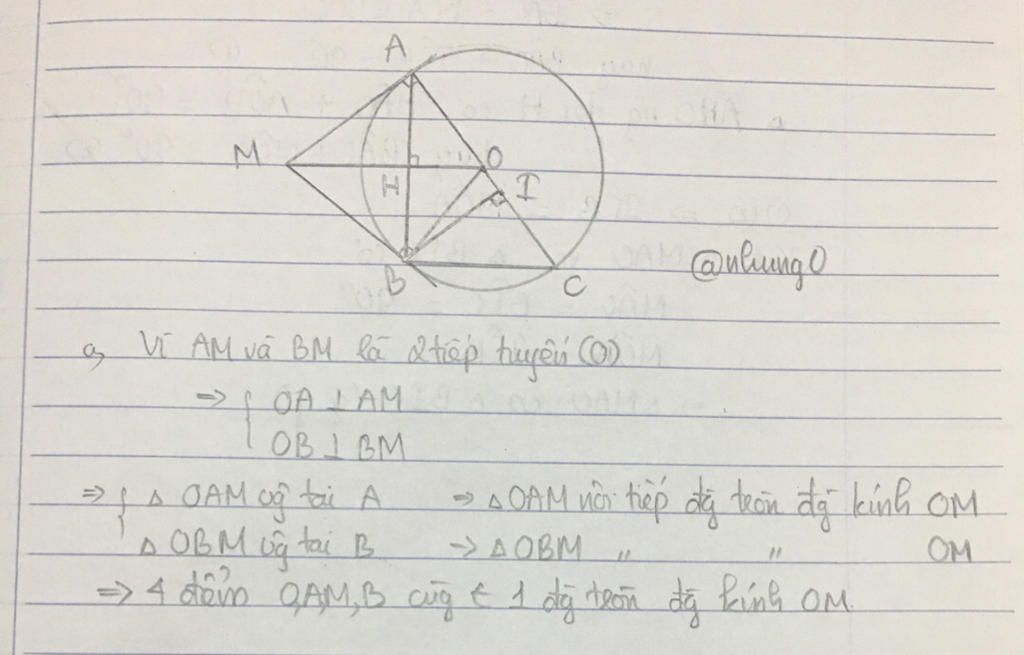 A
M
O
H
I
B
C
@nhung0
a, Vì AM và BM là 2 tiếp tuyến (O)
=> { OA ⊥ AM
OB ⊥ BM
=> { △ OAM vg tại A → △ OAM nội tiếp đg tròn đg kính OM
△ OBM vg tại B → △ OBM " " OM
=> 4 điểm O,A,M,B cùg ∈ 1 đg tròn đg kính OM.